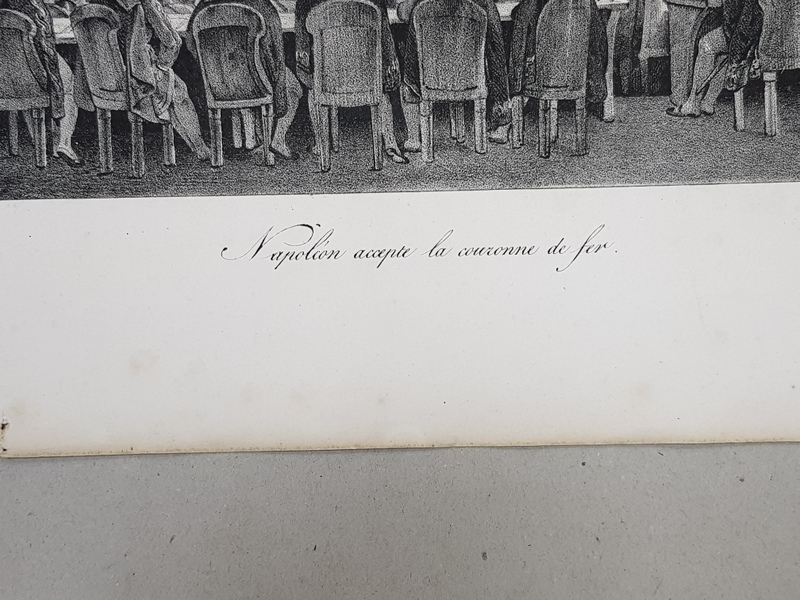 Napoléon accepte la couronne de fer.